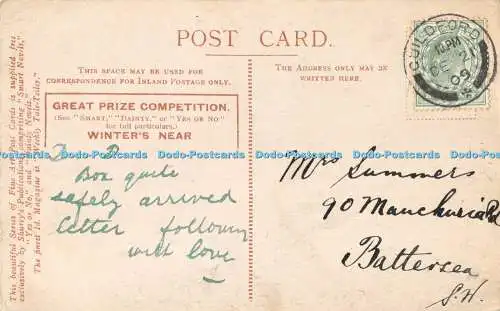 POST CARD.
THIS SPACE MAY BE USED FOR
CORRESPONDENCE FOR INLAND POSTAGE ONLY.
THE ADDRESS ONLY MAY BE
WRITTEN HERE.
GREAT PRIZE COMPETITION.
(See "SMART," "DAINTY," or "YES OR NO"
for full particulars.)
WINTER'S NEAR
Box quite
safely arrived
letter following
with love
Mrs Summers
90 Manchuria Rd
Battersea
S.W.
GUILDFORD
09
This beautiful Series of Fine Art Post Cards is supplied free
exclusively by Shurey's Publications, comprising "Smart Novels,"
"Yes or No," and "Dainty Novels."
Dodo-Postcards Dodo-Postcards Dodo-Postcards Dodo-Postcards Dodo-Postcards